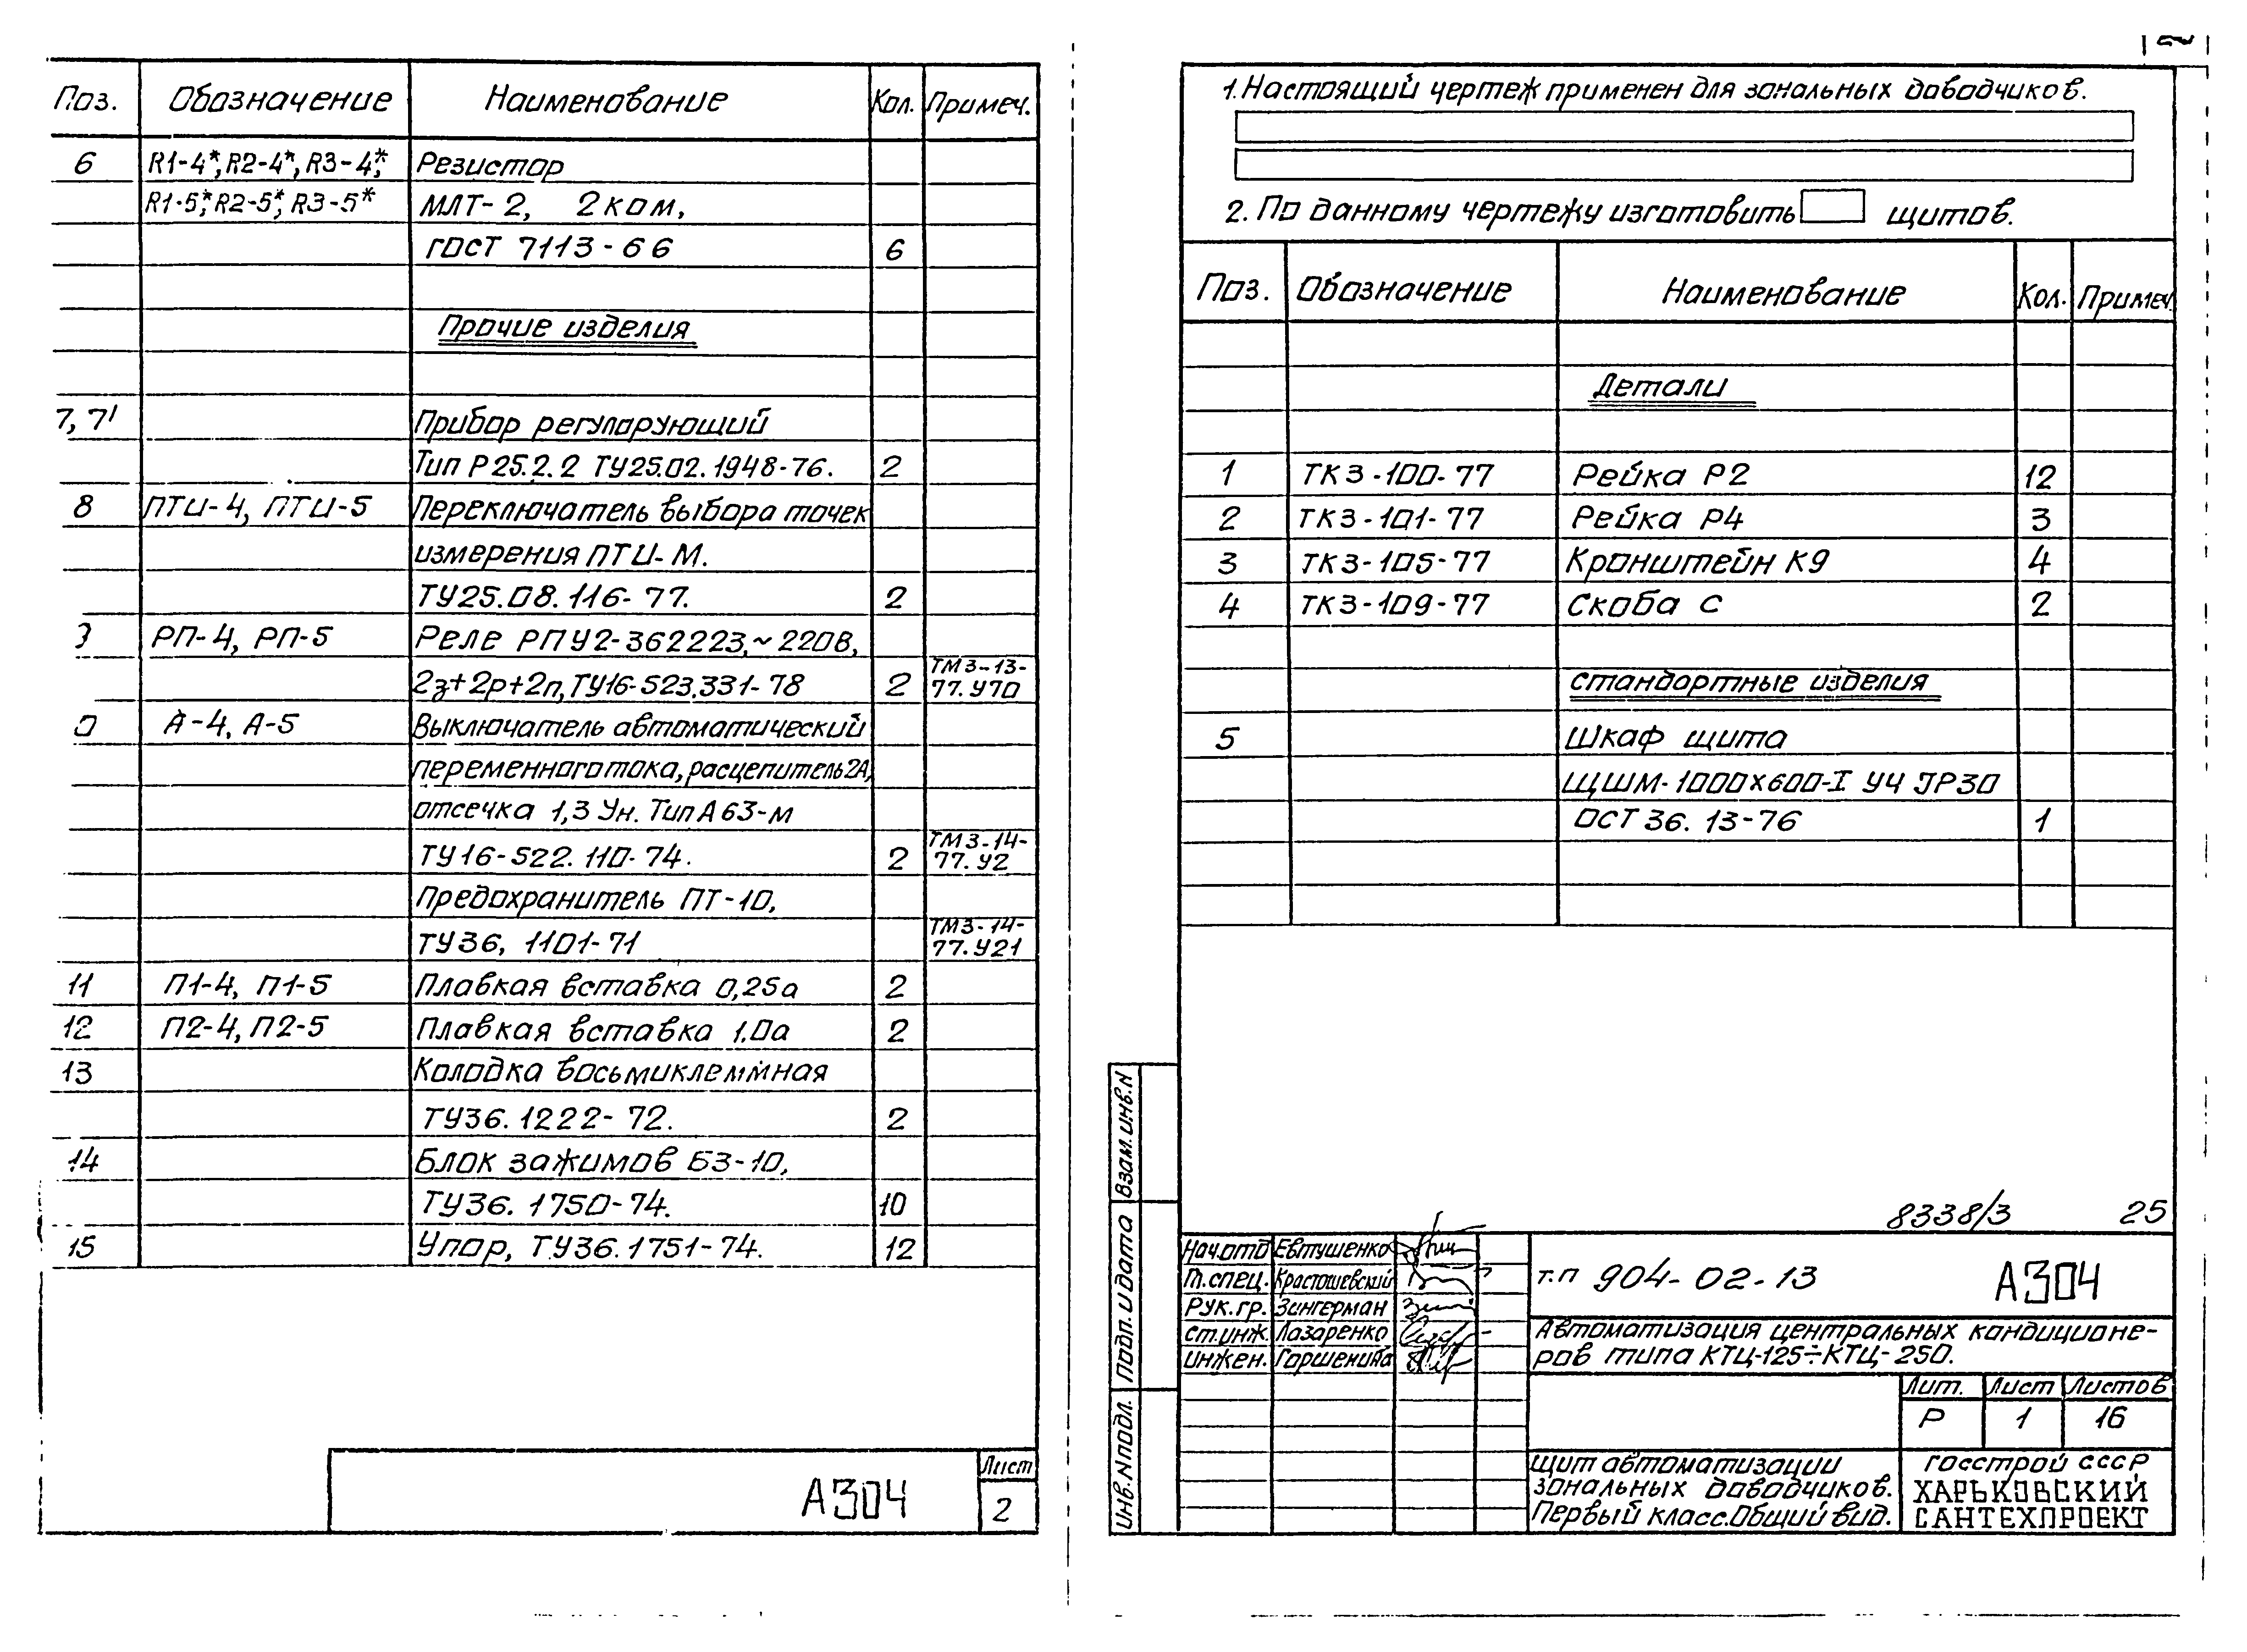 Поз. Обозначение Наименование Кол. Примеч.
6 R1-4*, R2-4*, R3-4*, Резистор
R1-5*, R2-5*, R3-5* МЛТ-2, 2ком,
гост 7113-66 6
Прочие изделия
7, 7' Прибор регулярующий
Тип Р25.2.2 ТУ25.02.1948-76. 2
8 ПТИ-4, ПТИ-5 Переключатель выбора точек
измерения ПТИ-М.
ТУ25.08.116-77. 2
РП-4, РП-5 Реле РПУ2-362223,~220В,
2з+2р+2п, ТУ16-523.331-78 2 ТМ3-13-77.У70
А-4, А-5 Выключатель автоматический
переменного тока, расцепитель 2А,
отсечка 1,3 Ун. Тип А63-м
ТУ16-522.110-74. 2 ТМ3-14-77.У2
Предохранитель ПТ-10,
ТУ36, 1101-71 ТМ3-14-77.У21
11 П1-4, П1-5 Плавкая вставка 0,25а 2
12 П2-4, П2-5 Плавкая вставка 1.0а 2
13 Колодка восьмиклеммная
ТУ36.1222-72. 2
14 Блок зажимов БЗ-10,
ТУ36.1750-74. 10
15 Упор, ТУ36.1751-74. 12
А304
Лист
2
1. Настоящий чертеж применен для зональных доводчиков.
2. По данному чертежу изготовить щитов.
Поз. Обозначение Наименование Кол. Примеч.
Детали
1 ТК3-100-77 Рейка Р2 12
2 ТК3-101-77 Рейка Р4 3
3 ТК3-105-77 Кронштейн К9 4
4 ТК3-109-77 Скоба С 2
стандортные изделия
5 Шкаф щита
ЩШМ-1000х600-I УЧ JP30
ОСТ 36.13-76 1
8338/3 25
Взам. инв. N
Подп. и дата
Инв. N подл.
Нач.отд Евтушенко
Гл.спец. Красташевский
Рук.гр. Зингерман
Ст.инж. Лазаренко
Инжен. Горшенина
т.п 904-02-13 А304
Автоматизация центральных кондиционе-
ров типа КТЦ-125÷КТЦ-250.
Лит. Лист Листов
Р 1 16
Щит автоматизации
зональных доводчиков.
Первый класс. Общий вид.
госстрой ссср
ХАРЬКОВСКИЙ
САНТЕХПРОЕКТ